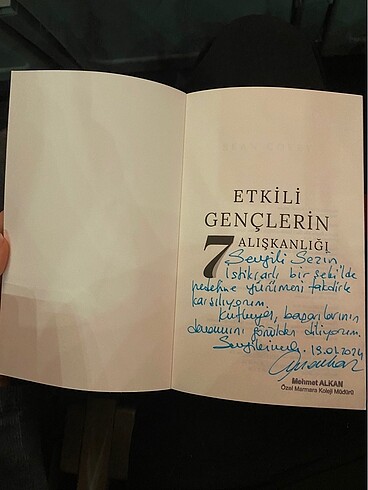 ETKİLİ
GENÇLERİN
7 ALIŞKANLIĞI
Sevgili Sezin,
İstikrarlı bir şekilde
hedefine yürümeni takdirle
karşılıyorum.
Kutluyor, başarılarının
devamını gönülden diliyorum.
Sevgilerimle. 19.01.2024
Mehmet ALKAN
Özel Marmara Koleji Müdürü